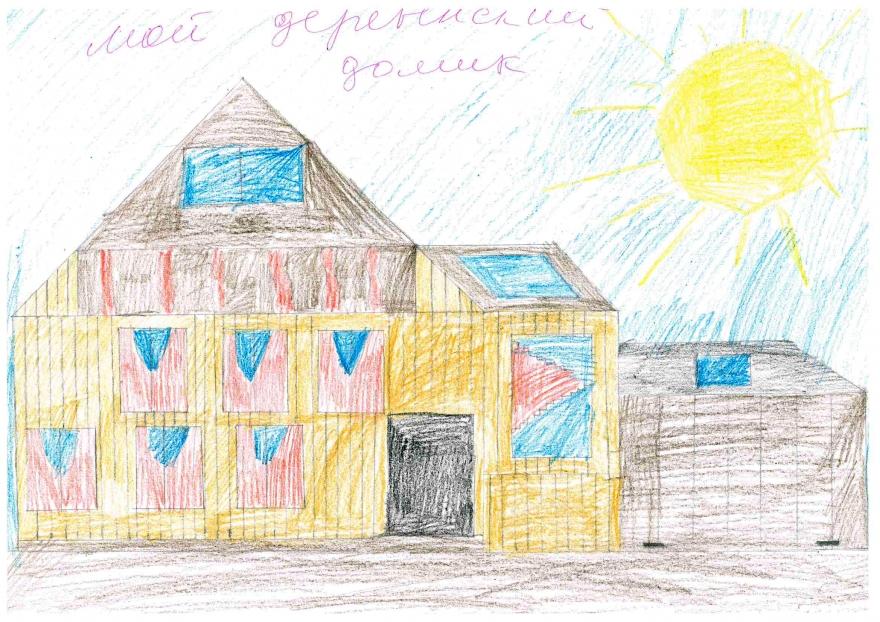 мой деревенский
домик